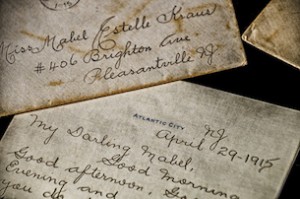 Miss Mabel Estelle Kraus
#406 Brighton Ave
Pleasantville NJ
ATLANTIC CITY NJ
April 29-1915
My Darling Mabel,
Good Morning
Good afternoon, Good
Evening and
you do